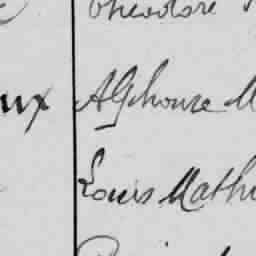 Theodore
ux Alphonse M
Louis Mathi